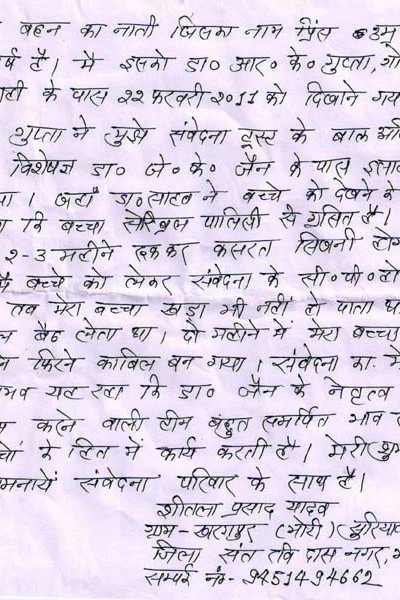 बहन का नाती जिसका नाम प्रिंस
है। मै इसको डा० आर० के० गुप्ता,
के पास 22 फरवरी 2011 को दिखाने गय
गुप्ता ने मुझे संवेदना ट्रस्ट के बाल
विशेषज्ञ डा० जे० के० जैन के पास
। जहाँ डा० साहब ने बच्चे को देखने के
कि बच्चा सेरिब्रल पालिसी से ग्रसित है।
2-3 महीने रुककर कसरत सिखनी
बच्चे को लेकर संवेदना के सी० पी०
तब मेरा बच्चा खड़ा भी नहीं हो पाता
बैठ लेता था। दो महीने में मेरा बच्चा
फिरने काबिल बन गया। संवेदना का
यह रहा कि डा० जैन के नेतृत्व
करने वाली टीम बहुत समर्पित भाव
के हित में कार्य करती है। मेरी शुभ
संवेदना परिवार के साथ है।
शीतला प्रसाद यादव
ग्राम- खरगपुर (मोरी)
जिला संत रवि दास नगर,
सम्पर्क नं०- 9451494662